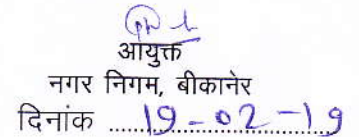 आयुक्त
नगर निगम, बीकानेर
दिनांक ....19-02-19....